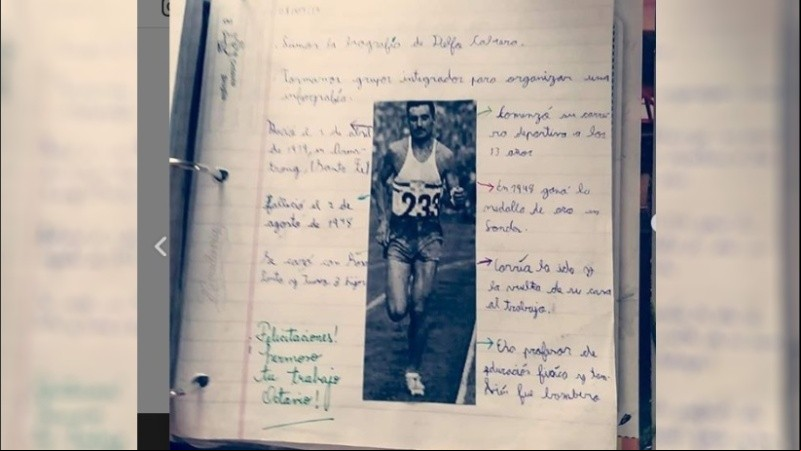 Leemos la biografía de Delfo Cabrera.
Formamos grupos integrados para organizar una
infografía.
Nació el 2 de abril
de 1919, en Arms-
trong, (Santa Fe)
Falleció el 2 de
agosto de 1981
Se casó con Rosa
y tuvo 3 hijos
Felicitaciones!
hermoso
tu trabajo
Octavio!
239
Comenzó su carre-
ra deportiva a los
13 años
En 1948 ganó la
medalla de oro en
Londres.
Corría la ida y
la vuelta de su casa
al trabajo.
Era profesor de
educación física y tam-
bién fue bombero